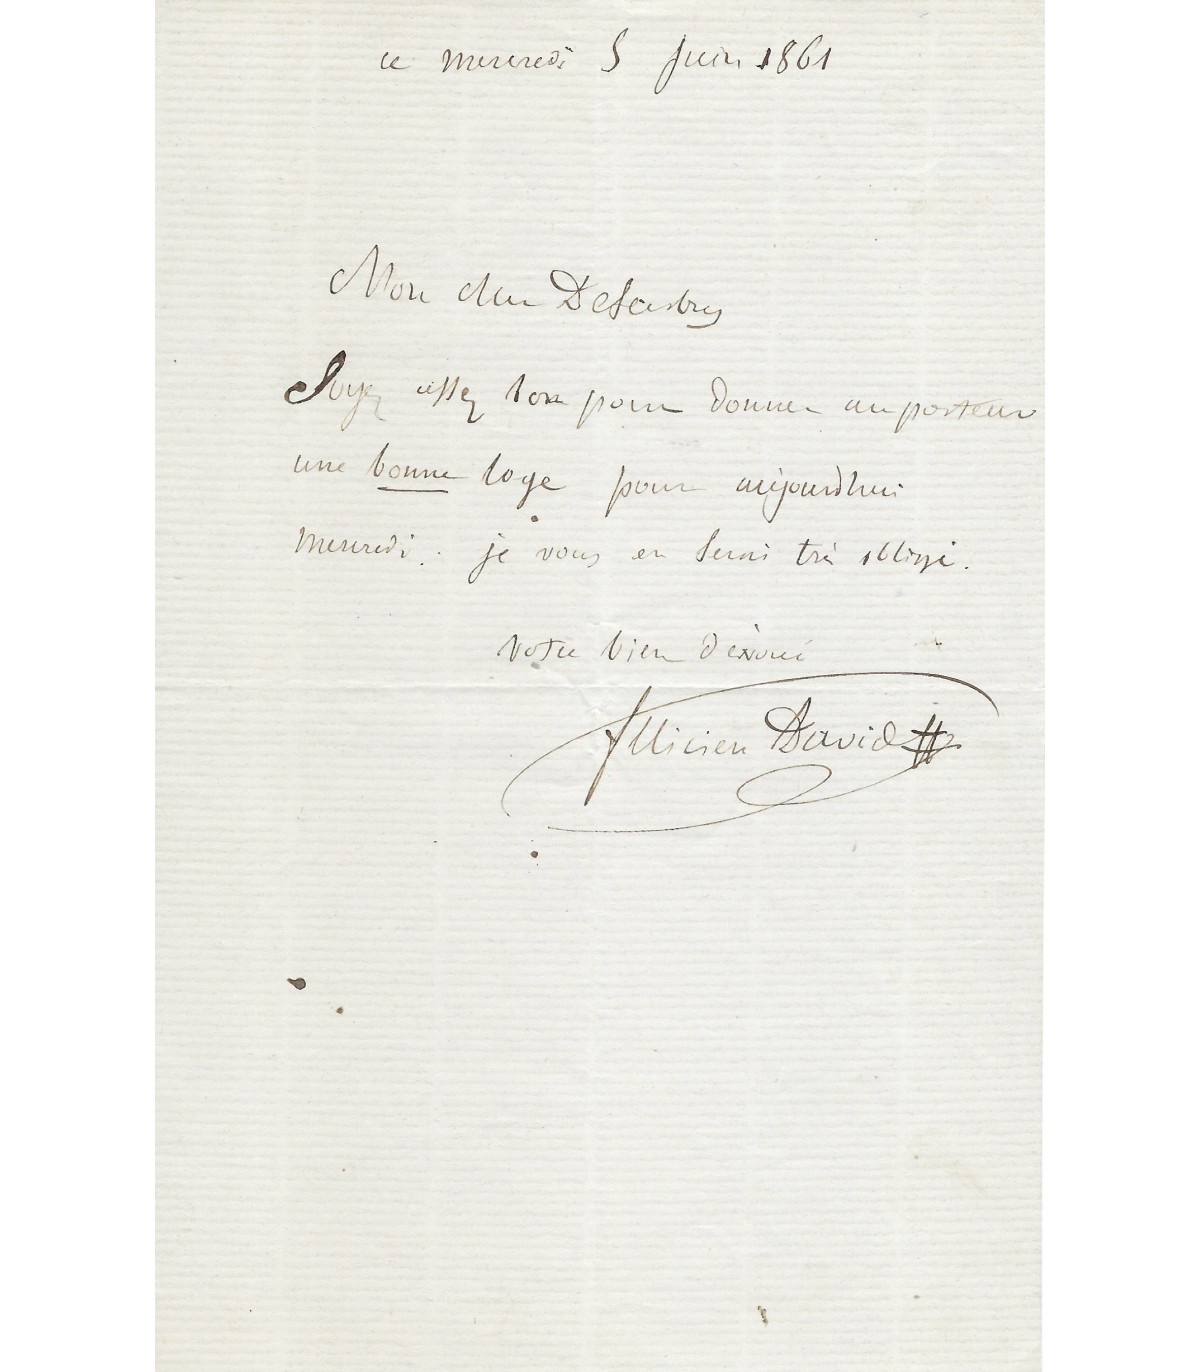 ce mercredi 5 Juin 1861
Mon cher
Soyez assez bon pour donner au porteur
une bonne loge pour aujourdhui
mercredi. je vous en serai très obligé.
votre bien dévoué
félicien David